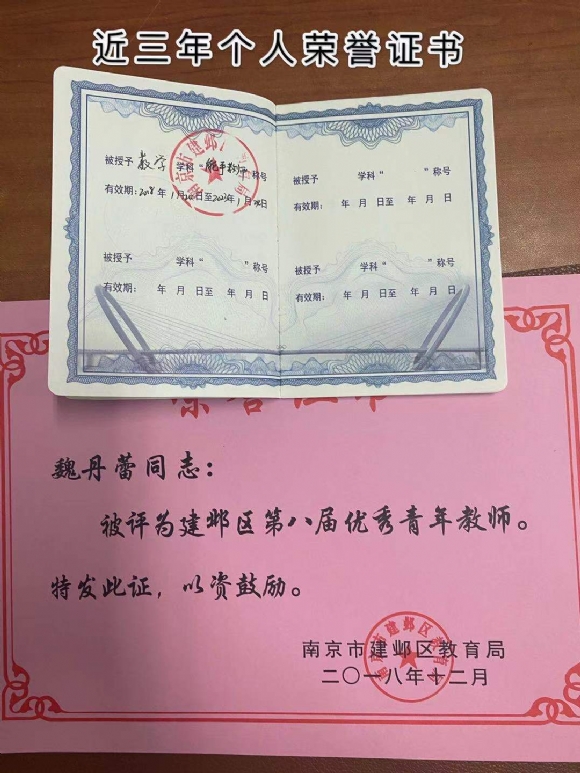 近三年个人荣誉证书
被授予 数学 学科“能手教师”称号
有效期：2018年1月 日至2023年1月 日
被授予 学科“ ”称号
有效期： 年 月 日至 年 月 日
被授予 学科“ ”称号
有效期： 年 月 日至 年 月 日
被授予 学科“ ”称号
有效期： 年 月 日至 年 月 日
魏丹蕾同志：
被评为建邺区第八届优秀青年教师。
特发此证，以资鼓励。
南京市建邺区教育局
二〇一八年十二月